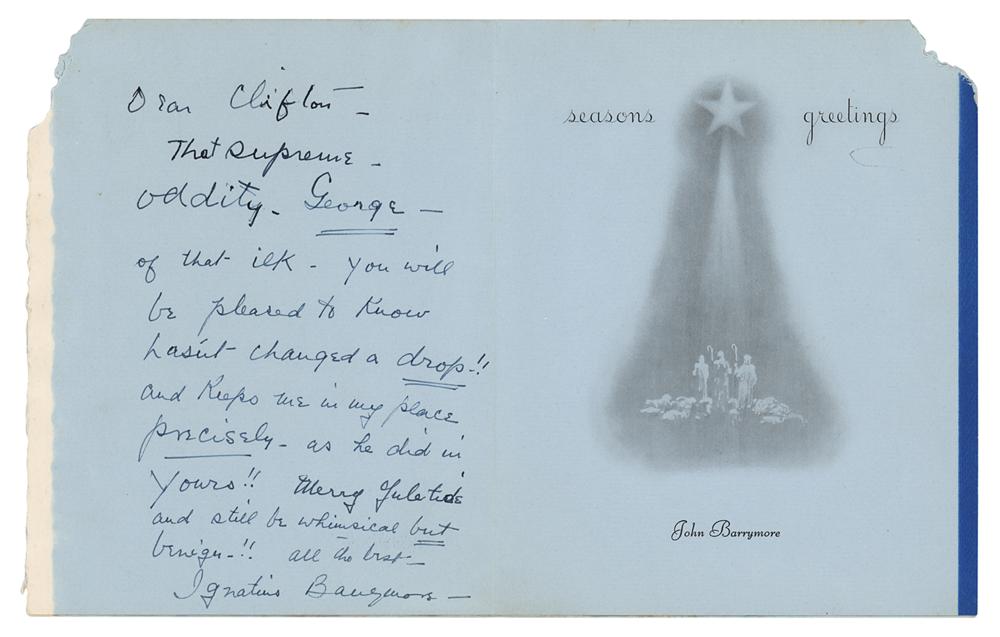 Dear Clifton —
That supreme —
oddity - George —
of that ilk - you will
be pleased to know
hasn't changed a drop!!
and keeps me in my place
precisely - as he did in
yours!! Merry Yuletide
and still be whimsical but
benign-!! all the best —
Ignatius Barrymore —
seasons greetings
John Barrymore